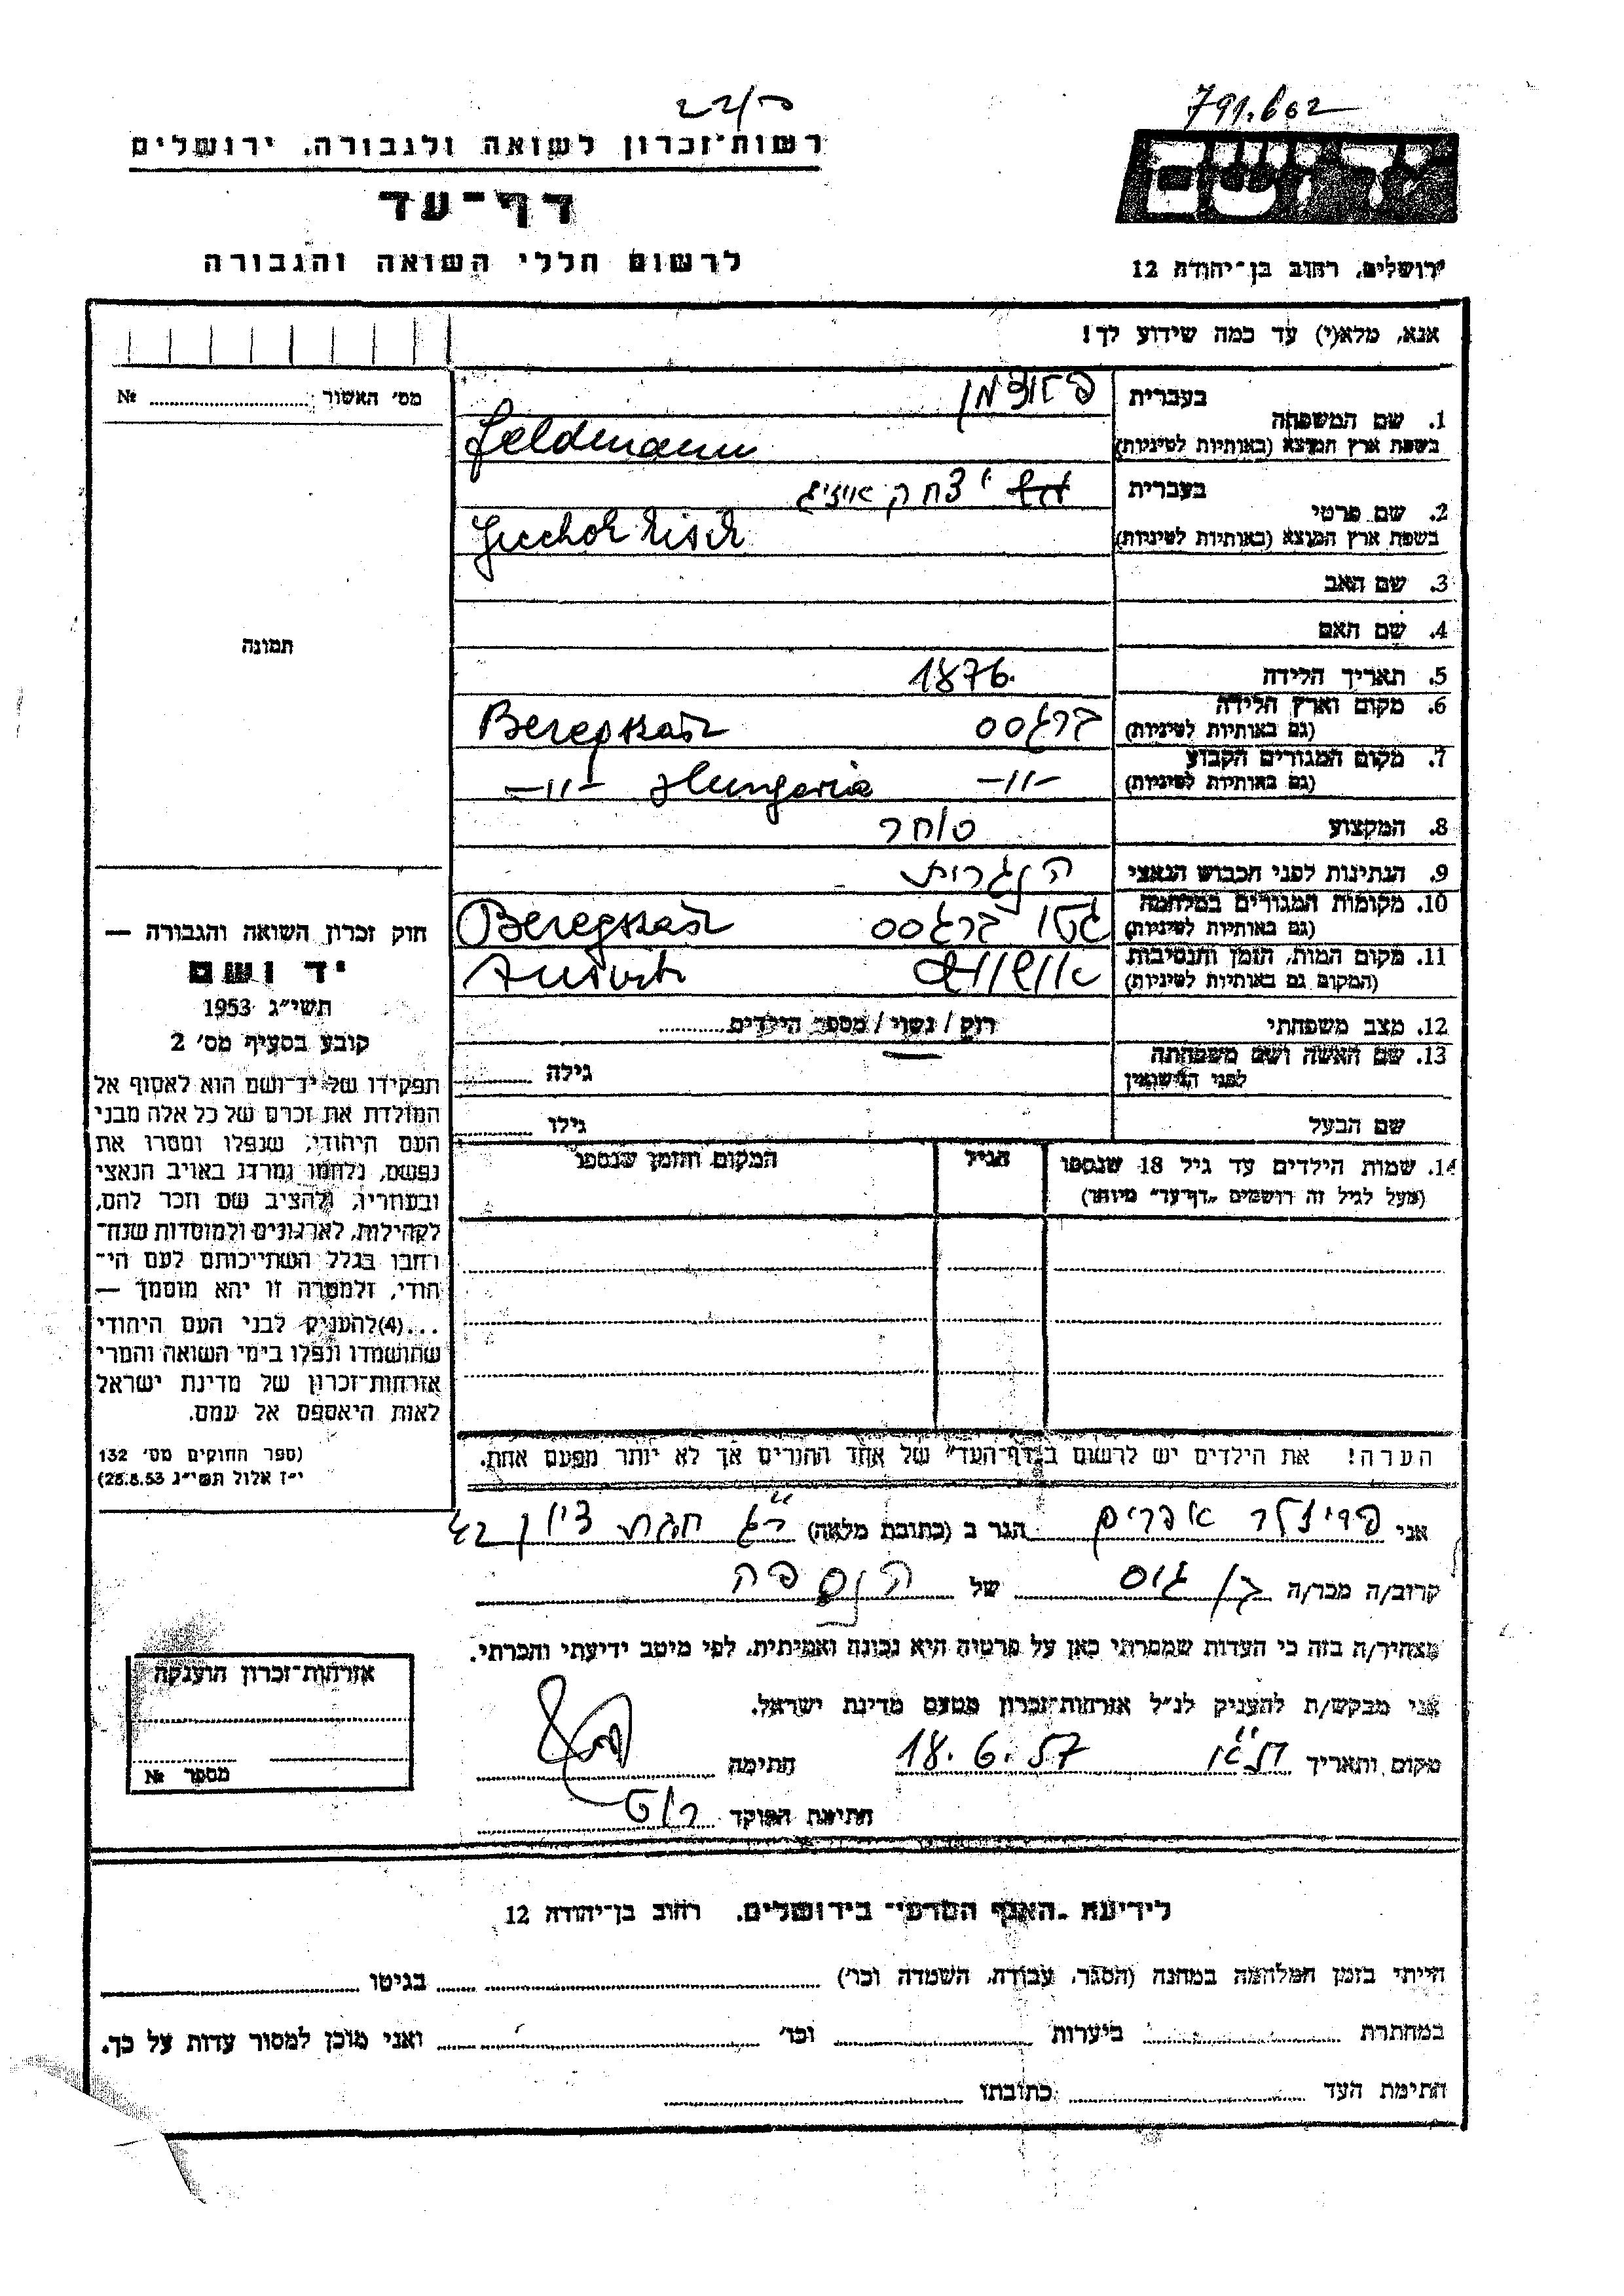 791.602
רשות־זכרון לשואה ולגבורה, ירושלים
יד ושם
דף־עד
לרשום חללי השואה והגבורה
ירושלים, רחוב בן־יהודה 12
אנא, מלא(י) עד כמה שידוע לך!
מס׳ האשור № 
1. שם המשפחה בעברית פלדמן
בשפת ארץ המוצא (באותיות לטיניות) Feldmann
2. שם פרטי בעברית יצחק אייזיג
בשפת ארץ המוצא (באותיות לטיניות)
3. שם האב
4. שם האם
תמונה
5. תאריך הלידה 1876.
6. מקום וארץ הלידה (גם באותיות לטיניות) ברגסס Beregszász
7. מקום המגורים הקבוע (גם באותיות לטיניות) –״– Hungaria –״–
8. המקצוע סוחר
9. הנתינות לפני הכבוש הנאצי הונגרית
10. מקומות המגורים במלחמה (גם באותיות לטיניות) גטו ברגסס Beregszász
11. מקום המות, הזמן והנסיבות (המקום גם באותיות לטיניות) אושוויץ
12. מצב משפחתי רווק / נשוי / מספר הילדים
13. שם האשה ושם משפחתה לפני הנישואין גילה
שם הבעל גילו
14. שמות הילדים עד גיל 18 שנספו הגיל המקום והזמן שנספו
(מעל לגיל זה רושמים „דף־עד״ מיוחד)
חוק זכרון השואה והגבורה —
יד ושם
תשי״ג 1953
קובע בסעיף מס׳ 2
תפקידו של יד־ושם הוא לאסוף אל
המולדת את זכרם של כל אלה מבני
העם היהודי, שנפלו ומסרו את
נפשם, נלחמו ומרדו באויב הנאצי
ובעוזריו, ולהציב שם וזכר להם,
לקהילות, לארגונים ולמוסדות שנח־
רבו בגלל השתייכותם לעם הי־
הודי, ולמטרה זו יהא מוסמך —
...(4) להעניק לבני העם היהודי
שהושמדו ונפלו בימי השואה והמרי
אזרחות־זכרון של מדינת ישראל
לאות היאספם אל עמם.
(ספר החוקים מס׳ 132
י״ז אלול תשי״ג 28.8.53)
הערה! את הילדים יש לרשום ב„דף־העד״ של אחד ההורים אך לא יותר מפעם אחת.
אני אפרים הגר ב (כתובת מלאה) ר״ג חבת ציון 42
קרוב/ה מכר/ה בן גיס של הנספה
מצהיר/ה בזה כי העדות שמסרתי כאן על פרטיה היא נכונה ואמיתית, לפי מיטב ידיעתי והכרתי.
אני מבקש/ת להעניק לנ״ל אזרחות־זכרון מטעם מדינת ישראל.
מקום ותאריך 18.6.57 חתימה
חתימת הפוקד
אזרחות־זכרון הוענקה
מספר №
לידיעת „האגף המדעי״ בירושלים, רחוב בן־יהודה 12
הייתי בזמן המלחמה במחנה (הסגר, עבודה, השמדה וכו׳) בגיטו
במחתרת ביערות וכו׳ ואני מוכן למסור עדות על כך.
חתימת העד כתובתו